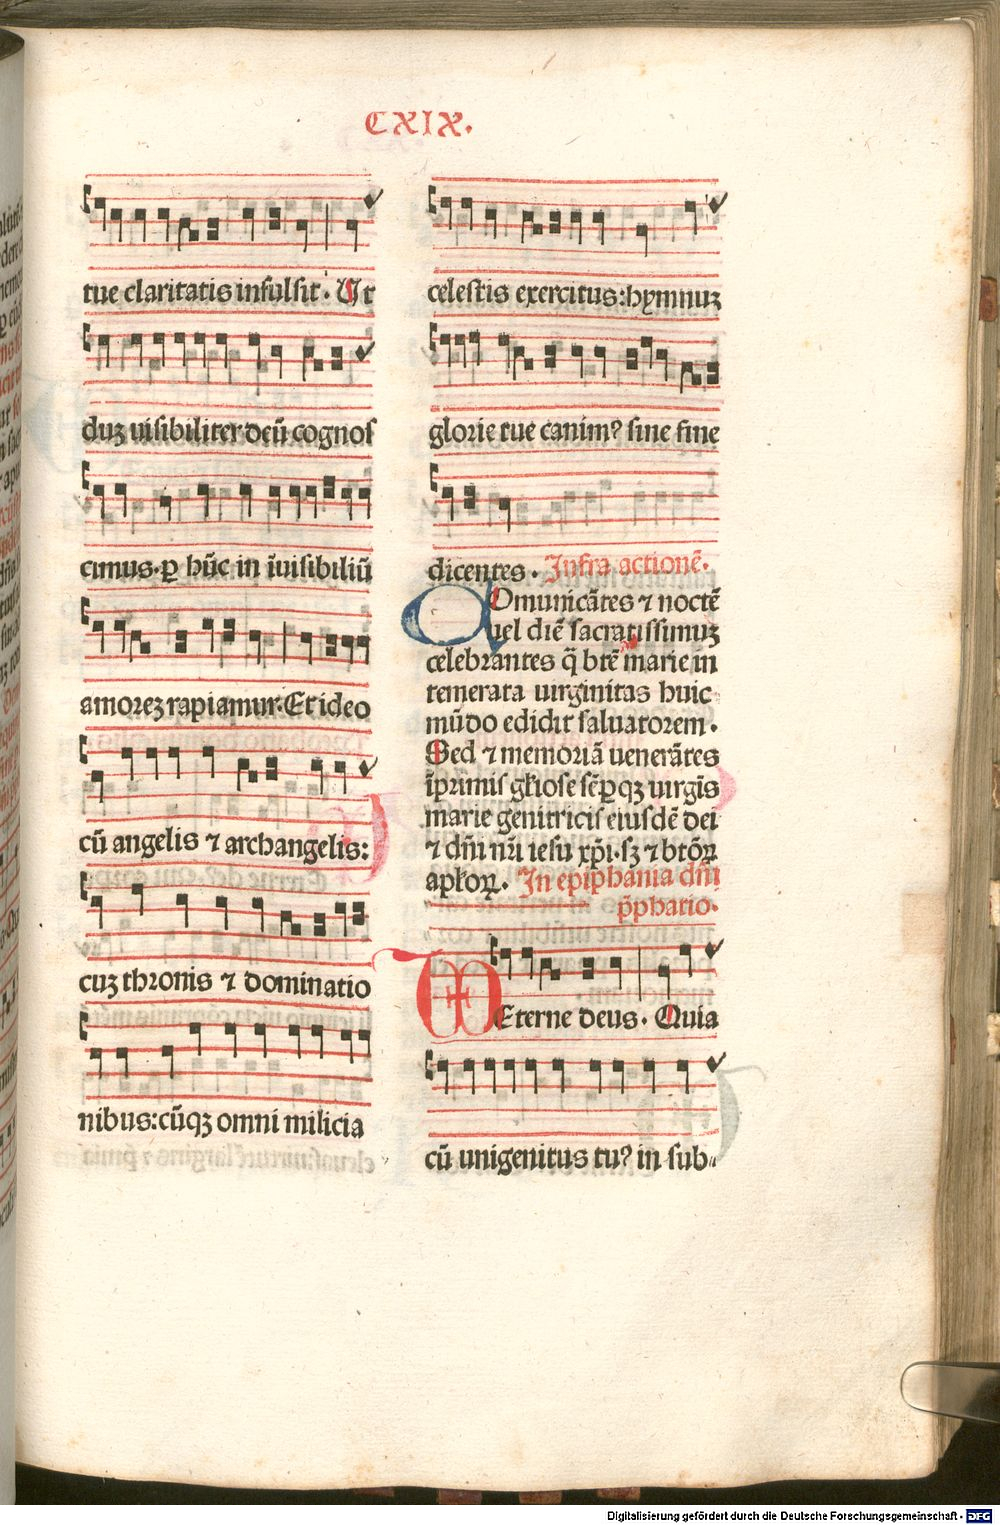 CXIX.
tue claritatis infulsit. Ut
duʒ uisibiliter deū cognos
cimus. ꝑ hūc in īuisibiliū
amoreʒ rapiamur. Et ideo
cū angelis ⁊ archangelis:
cuʒ thronis ⁊ dominatio
nibus: cūqʒ omni milicia
celestis exercitus: hymnuʒ
glorie tue canimꝰ sine fine
dicentes. Infra actionē.
Comunicātes ⁊ noctē
uel diē sacratissimuʒ
celebrantes q̄ btē marie in
temerata uirginitas huic
mūdo edidit saluatorem.
Sed ⁊ memoriā uenerātes
īprimis gl̄iose sēꝑqʒ uirgīs
marie genitricis eiusdē dei
⁊ dn̄i nr̄i iesu xp̄i. sʒ ⁊ btōꝝ
apl̄oꝝ. In epiphania dn̄i
p̄phatio.
Eterne deus. Quia
cū unigenitus tuꝰ in sub⸗
Digitalisierung gefördert durch die Deutsche Forschungsgemeinschaft - DFG